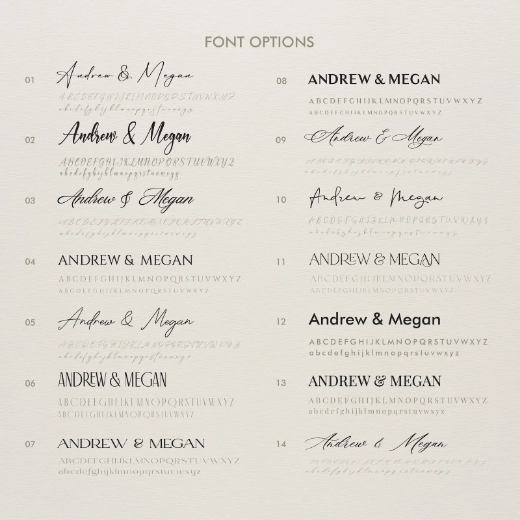 FONT OPTIONS
01 Andrew & Megan
ABCDEFGHIJKLMNOPQRSTUVWXYZ
abcdefghijklmnopqrstuvwxyz
02 Andrew & Megan
ABCDEFGHIJKLMNOPQRSTUVWXYZ
abcdefghijklmnopqrstuvwxyz
03 Andrew & Megan
ABCDEFGHIJKLMNOPQRSTUVWXYZ
abcdefghijklmnopqrstuvwxyz
04 ANDREW & MEGAN
ABCDEFGHIJKLMNOPQRSTUVWXYZ
ABCDEFGHIJKLMNOPQRSTUVWXYZ
05 Andrew & Megan
ABCDEFGHIJKLMNOPQRSTUVWXYZ
abcdefghijklmnopqrstuvwxyz
06 ANDREW & MEGAN
ABCDEFGHIJKLMNOPQRSTUVWXYZ
ABCDEFGHIJKLMNOPQRSTUVWXYZ
07 ANDREW & MEGAN
ABCDEFGHIJKLMNOPQRSTUVWXYZ
abcdefghijklmnopqrstuvwxyz
08 ANDREW & MEGAN
ABCDEFGHIJKLMNOPQRSTUVWXYZ
ABCDEFGHIJKLMNOPQRSTUVWXYZ
09 Andrew & Megan
ABCDEFGHIJKLMNOPQRSTUVWXYZ
abcdefghijklmnopqrstuvwxyz
10 Andrew & Megan
ABCDEFGHIJKLMNOPQRSTUVWXYZ
abcdefghijklmnopqrstuvwxyz
11 ANDREW & MEGAN
ABCDEFGHIJKLMNOPQRSTUVWXYZ
ABCDEFGHIJKLMNOPQRSTUVWXYZ
12 Andrew & Megan
ABCDEFGHIJKLMNOPQRSTUVWXYZ
abcdefghijklmnopqrstuvwxyz
13 ANDREW & MEGAN
ABCDEFGHIJKLMNOPQRSTUVWXYZ
abcdefghijklmnopqrstuvwxyz
14 Andrew & Megan
ABCDEFGHIJKLMNOPQRSTUVWXYZ
abcdefghijklmnopqrstuvwxyz